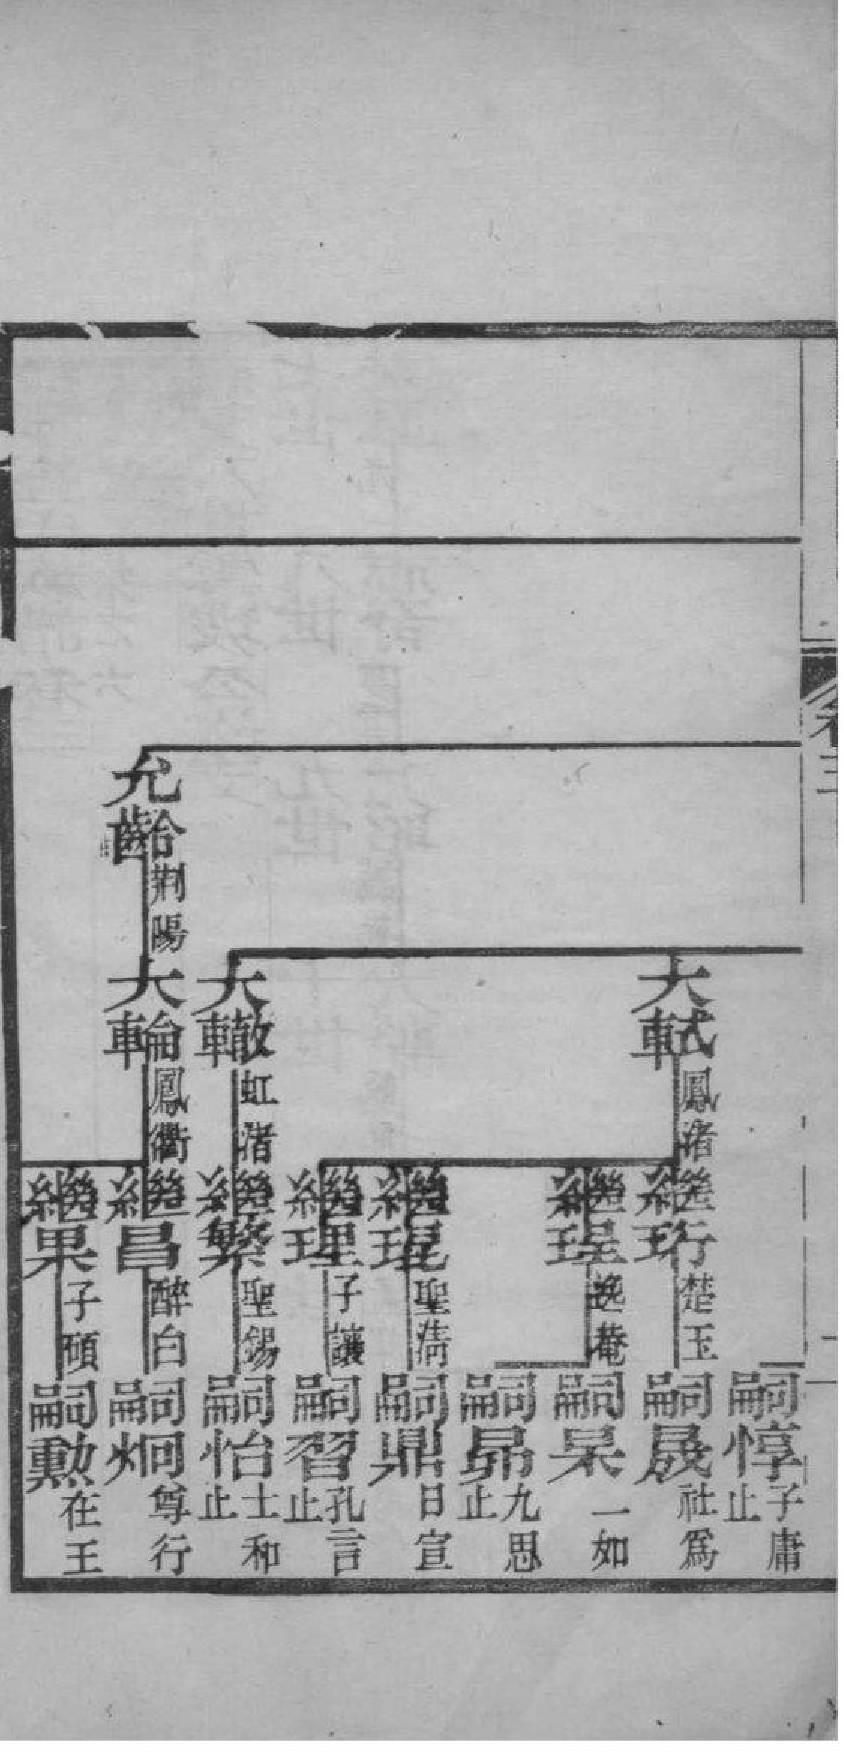 卷三
嗣惇 子庸 止
大軾 鳳渚
繼珩 楚玉
嗣晟 社爲
繼珵 逸菴
嗣杲 一如
嗣昴 九思 止
繼琨 聖淸
嗣鼎 日宣
繼理 子讓
嗣習 孔言 止
大轍 虹渚
繼繁 聖錫
嗣怡 士和 止
允齡 荆陽
大輪 鳳衢
繼昌 醉白
嗣炯 尊行
繼果 子碩
嗣勲 在王